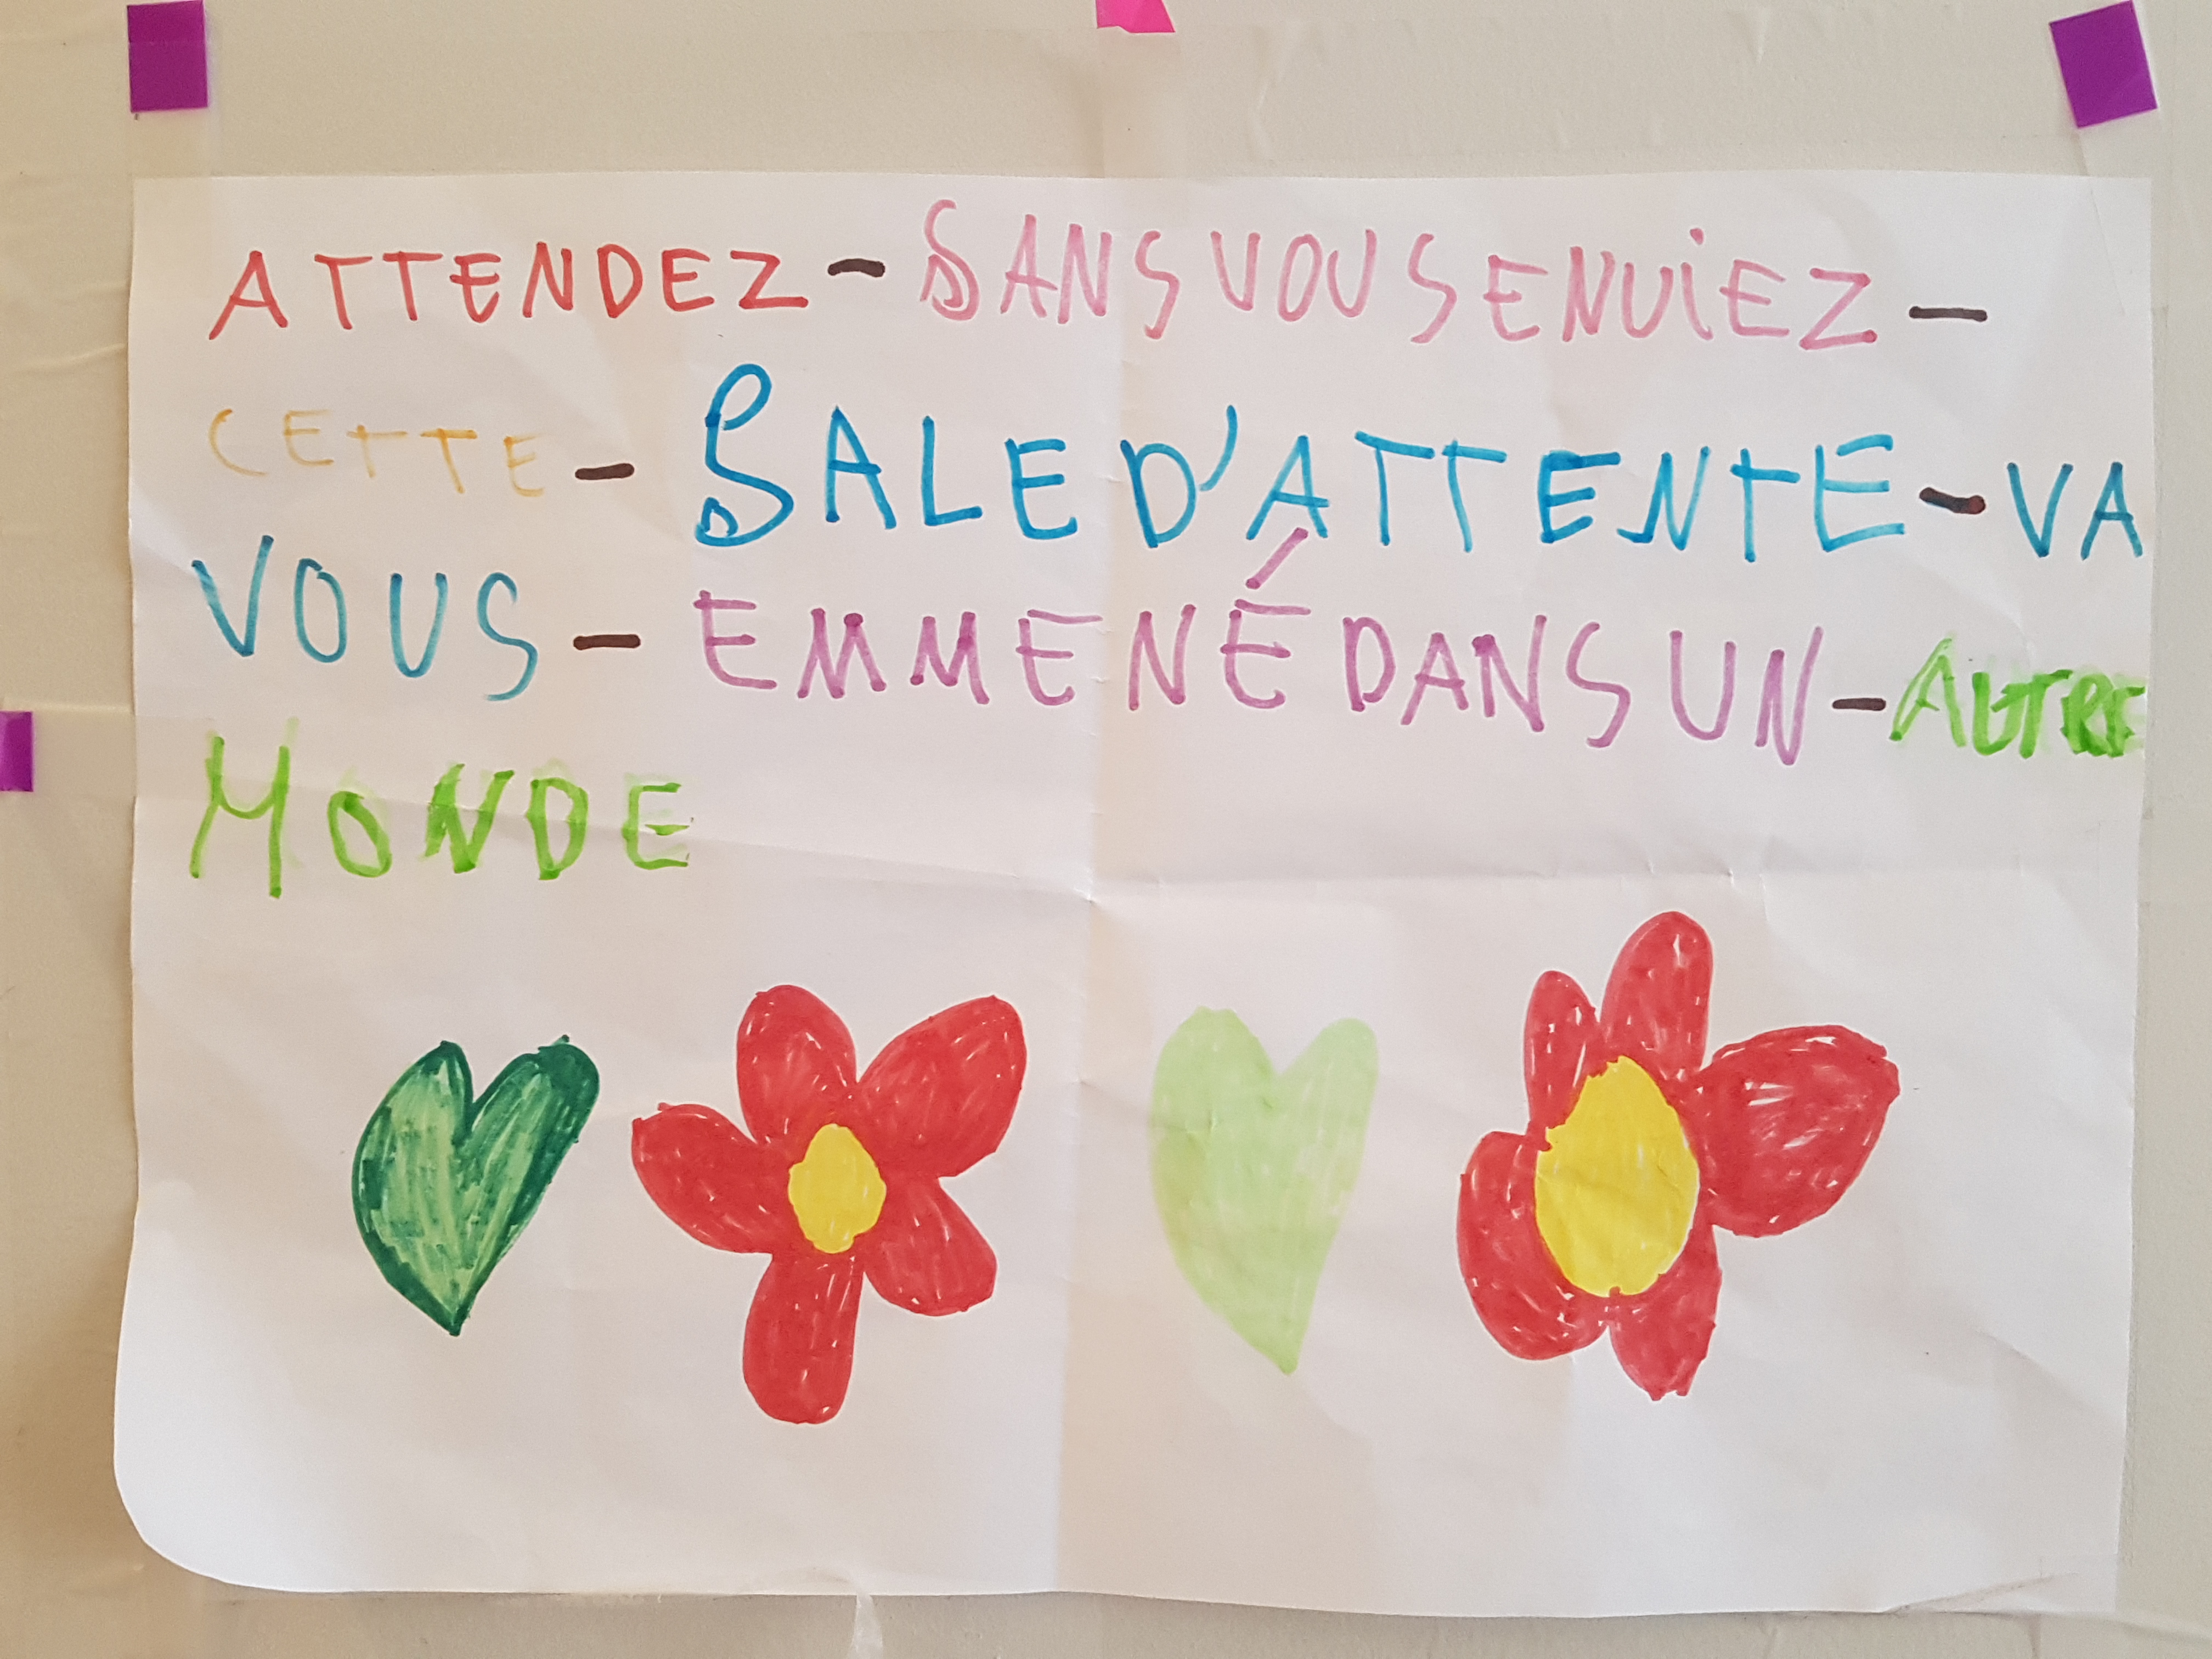 ATTENDEZ - SANS VOUS ENUIEZ -
CETTE - SALE D'ATTENTE - VA
VOUS - EMMENÉ DANS UN - AUTRE
MONDE